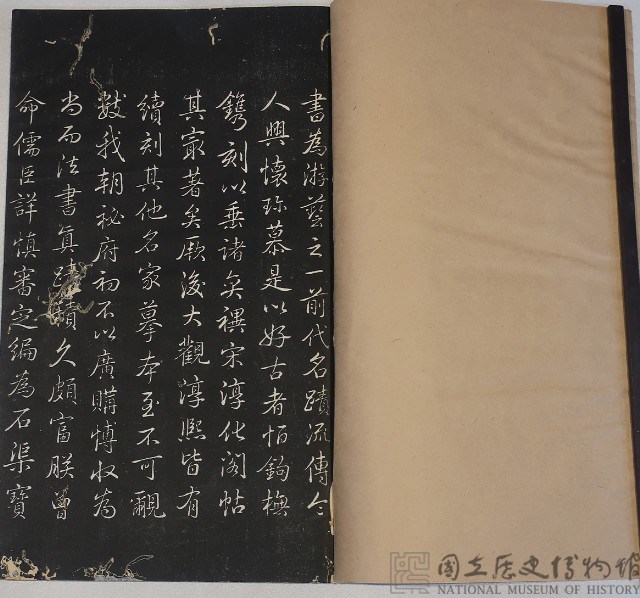 書為游藝之一前代名蹟流傳令
人興懷珎慕是以好古者恒鉤橅
鐫刻以垂諸奕禩宋淳化閣帖
其㝡著矣厥後大觀淳熙皆有
續刻其他名家摹本至不可覼
數我朝祕府初不以廣購博收為
尚而法書真蹟積久頗富朕曾
命儒臣詳慎審定編為石渠寶
國立歷史博物館
NATIONAL MUSEUM OF HISTORY